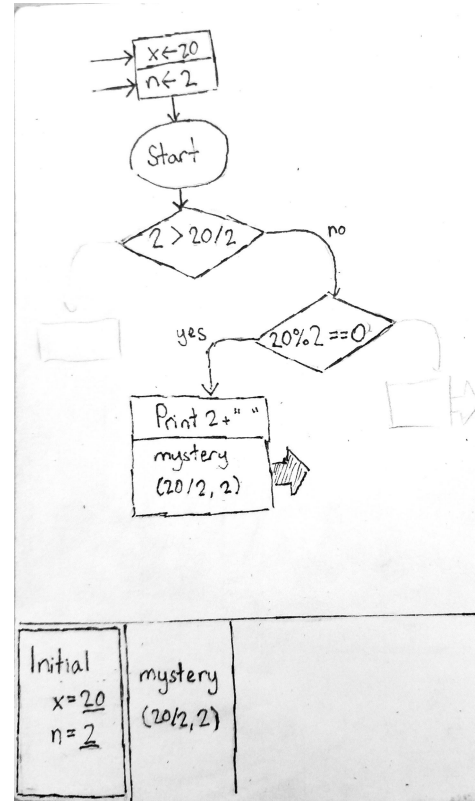 x←20
n←2
Start
2 > 20/2
no
20%2==0
yes
Print 2+" "
mystery
(20/2, 2)
Initial
x=20
n=2
mystery
(20/2,2)